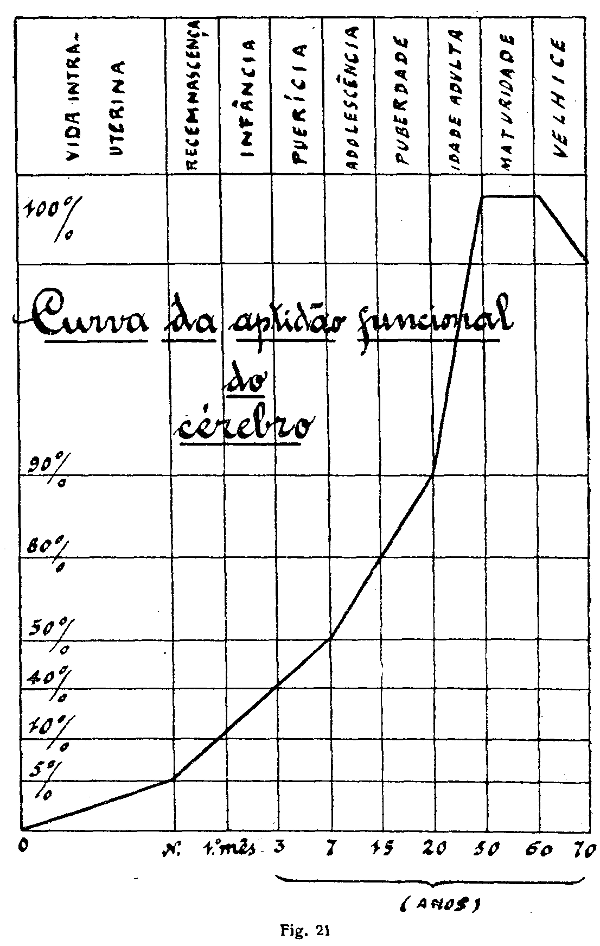 VIDA INTRA-
UTERINA
RECEMNASCENÇA
INFÂNCIA
PUERÍCIA
ADOLESCÊNCIA
PUBERDADE
IDADE ADULTA
MATURIDADE
VELHICE
100%
Curva da aptidão funcional
do
cérebro
90%
60%
50%
40%
10%
5%
0 N. 1.º mês 3 7 15 20 50 60 70
(ANOS)
Fig. 21